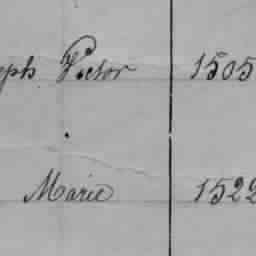 eph Victor 1505
Marie 1522